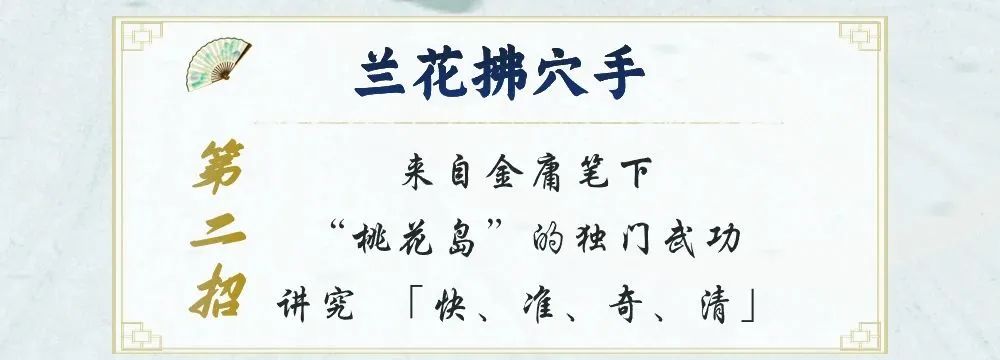 兰花拂穴手
第二招
来自金庸笔下
“桃花岛”的独门武功
讲究 「快、准、奇、清」